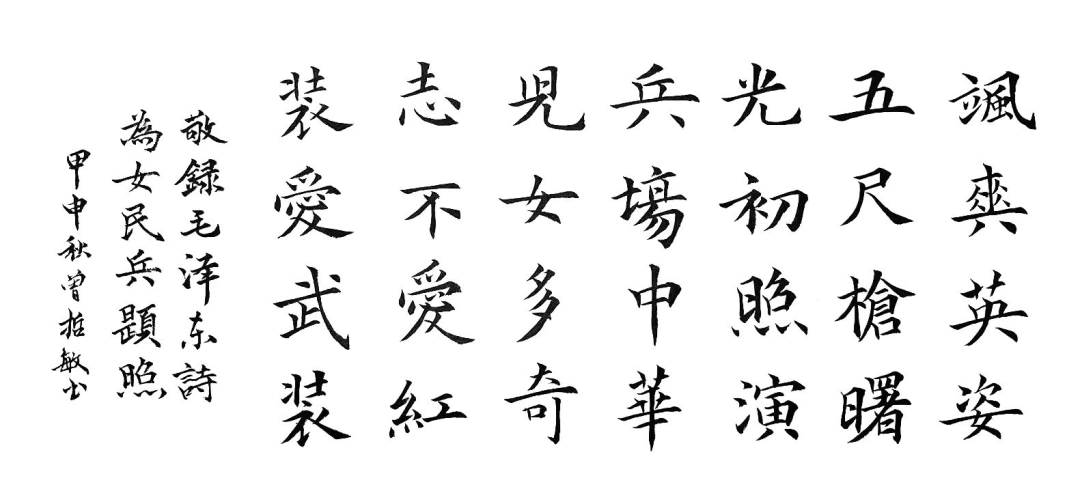 颯爽英姿
五尺槍曙
光初照演
兵塲中華
兒女多奇
志不愛紅
装愛武装
敬録毛泽东詩
為女民兵題照
甲申秋曾哲敏书